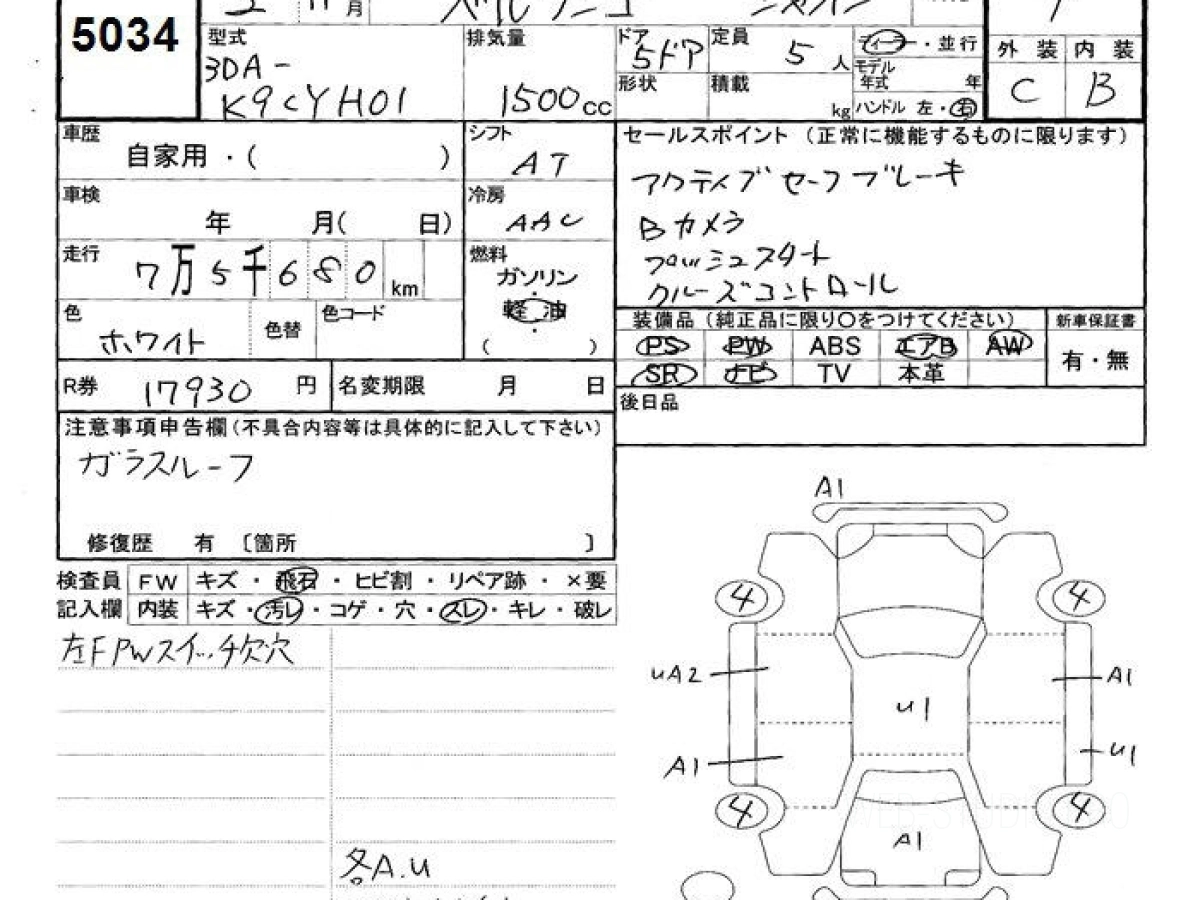 5034
月
型式
3DA-
K9CYH01
排気量
1500cc
ドア
5ドア
形状
定員
5人
積載
kg
ディーラー・並行
モデル
年式 年
ハンドル 左・右
外装 内装
C B
車歴
自家用・( )
シフト
AT
車検
年 月( 日)
冷房
AAC
走行
7万5千680km
燃料
ガソリン
・
軽油
・
( )
色
ホワイト
色替
色コード
R券 17930 円
名変期限 月 日
セールスポイント (正常に機能するものに限ります)
アクティブセーフブレーキ
Bカメラ
プッシュスタート
クルーズコントロール
装備品(純正品に限り○をつけてください)
PS PW ABS エアB AW
SR ナビ TV 本革
新車保証書
有・無
後日品
注意事項申告欄(不具合内容等は具体的に記入して下さい)
ガラスルーフ
修復歴 有 〔箇所 〕
検査員 FW キズ・飛石・ヒビ割・リペア跡・×要
記入欄 内装 キズ・汚レ・コゲ・穴・スレ・キレ・破レ
左FPWスイッチ欠穴
各A.U
A1
4 4
UA2 A1
U1
A1 U1
4 4
A1